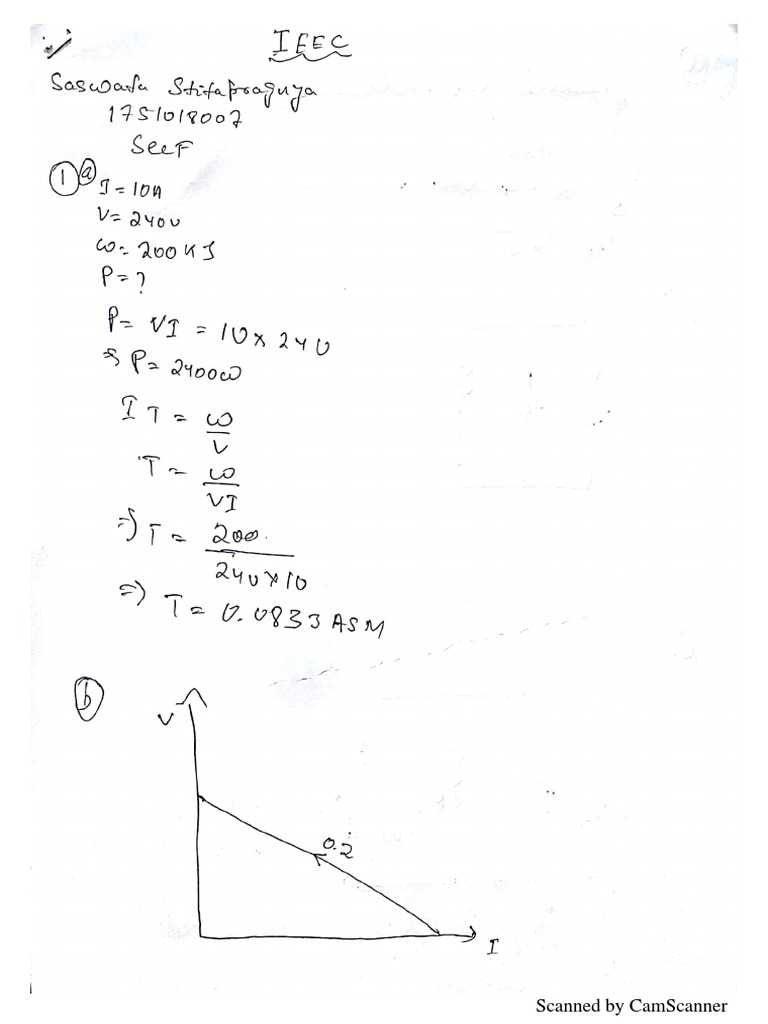 IEEC
Saswata Stitapragnya
1751018007
Sec F
1 a
I = 10A
V = 240V
ω = 200 KJ
P = ?
P = VI = 10 × 240
⇒ P = 2400ω
I T = ω/V
T = ω/VI
⇒ T = 200/240×10
⇒ T = 0.0833 ASM
b
V
0.2
I
Scanned by CamScanner